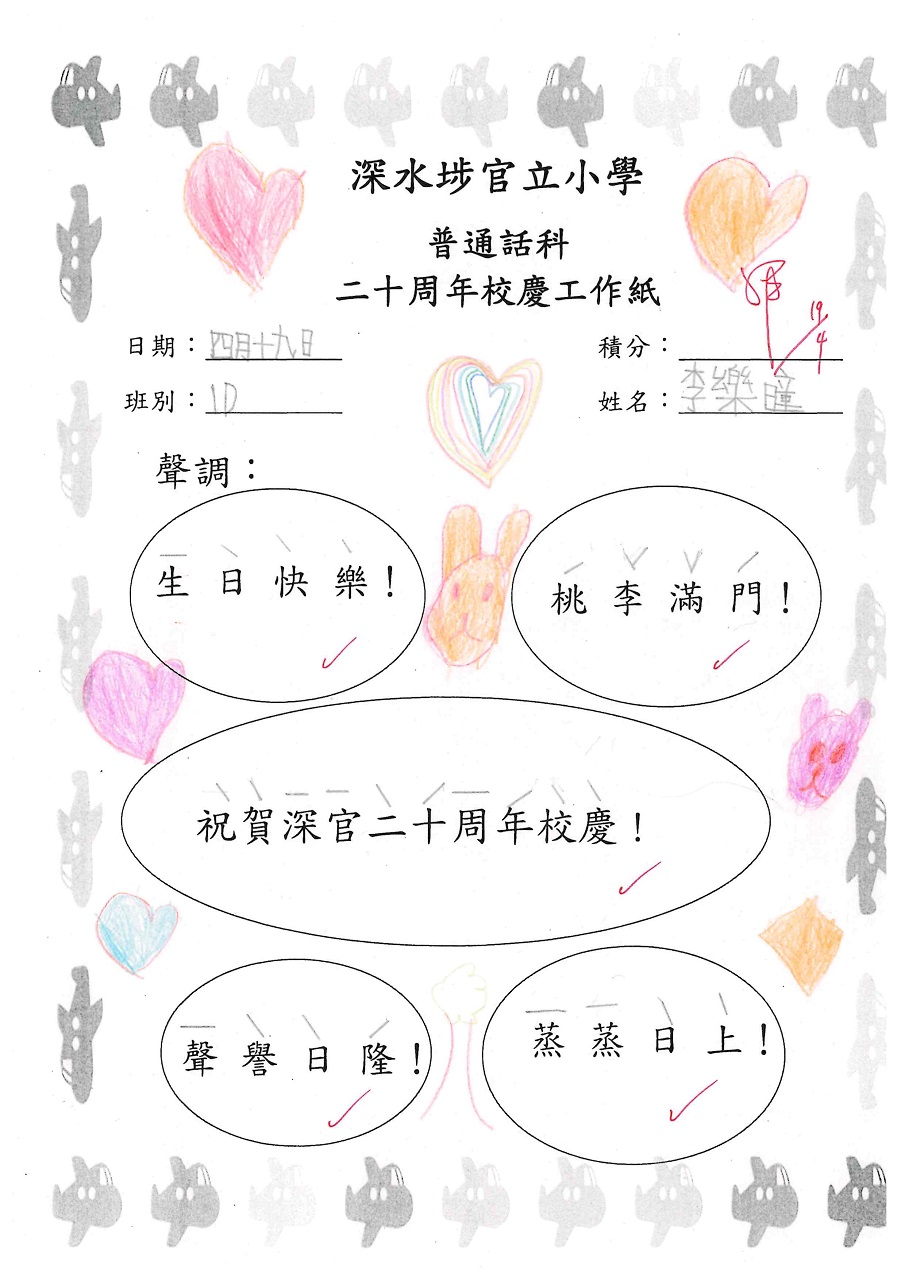 深水埗官立小學
普通話科
二十周年校慶工作紙
日期：四月十九日
積分：
19/4
班別：1D
姓名：李樂瞳
聲調：
生日快樂！
桃李滿門！
祝賀深官二十周年校慶！
聲譽日隆！
蒸蒸日上！